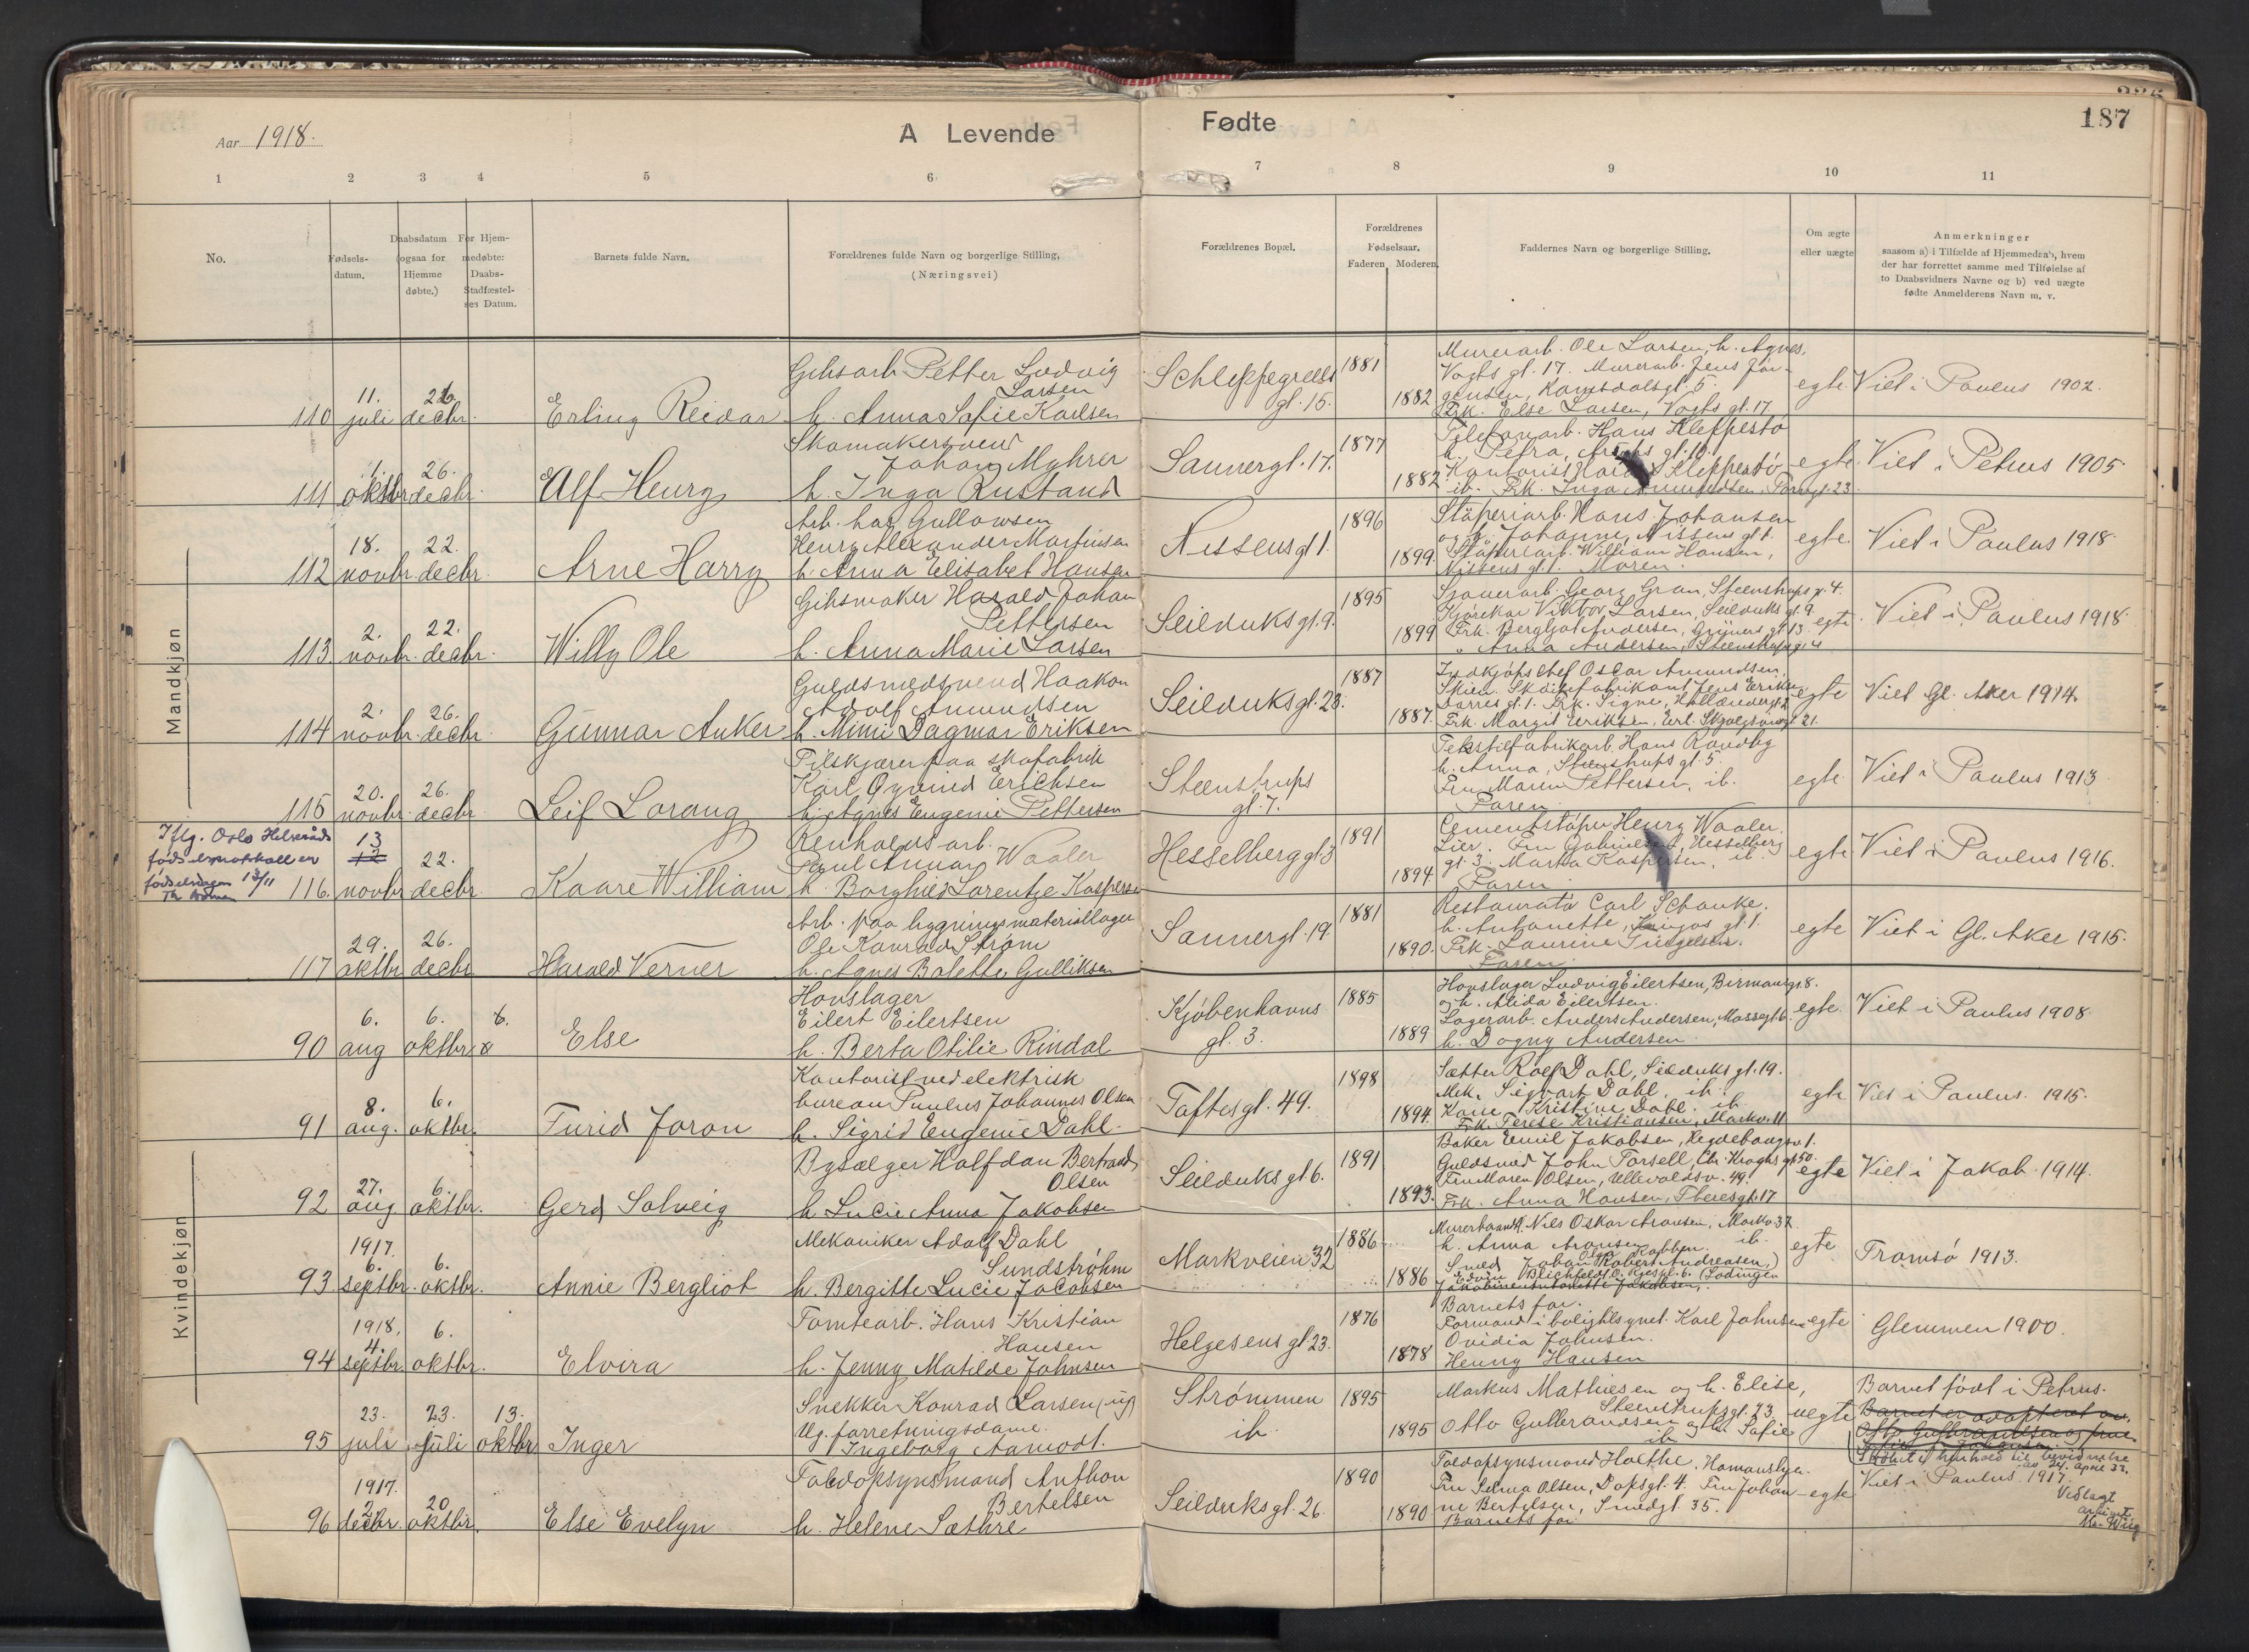 Aar 1918.
A Levende
Fødte
187
1
2
3
4
5
6
7
8
9
10
11
No.
Fødsels-
datum.
Daabsdatum
(ogsaa for
Hjemme
døbte.)
For Hjem-
medøbte:
Daabs-
Stadfæstel-
ses Datum.
Barnets fulde Navn.
Forældrenes fulde Navn og borgerlige Stilling.
(Næringsvei)
Forældrenes Bopæl.
Forældrenes
Fødselsaar.
Faderen Moderen.
Faddernes Navn og borgerlige Stilling.
Om ægte
eller uægte
Anmerkninger
saasom a) i Tilfælde af Hjemmedaab, hvem
der har forrettet samme med Tilføielse af
to Daabsvidners Navne og b) ved uægte
fødte Anmelderens Navn m. v.
Mandkjøn
110
11.
juli
26.
decbr.
Erling Reidar
Petter Ludvig
Larsen
h. Anna Sofie Karlsen
Schleppegrells
gt. 15.
1881
1882
Murerarb. Ole Larsen, h. Agnes,
Vogts gt. 17. Murerarb. Jens Jør-
gensen, Romsdalsgt. 5.
Frk. Else Larsen, Vogts gt. 17
egte
Viet i Paulus 1902.
111
1.
oktbr.
26.
decbr.
Alf Henry
Skomakersvend
Johan Myhrer
h. Inga Rustand
Sannergt. 17.
1877
1882
Hans Kleppestø
h. Petra,
Kleppestø
ib. Frk. Inga
egte
Viet i Petrus 1905.
112
18.
novbr.
22.
decbr.
Arne Harry
Henry Alexander Martinsen
h. Anna Elisabet Hansen
Nissens gt 1.
1896
1899
Støperiarb. Hans Johansen
og h. Johanne, Nissens gt. 1.
Støperiarb. William Hansen,
Nissens gt. 1. Moren.
egte
Viet i Paulus 1918.
113
2.
novbr.
22.
decbr.
Willy Ole
Harald Johan
Pettersen
h. Anna Marie Larsen
Seilduks gt. 9.
1895
1899
Sjauerarb. Georg Gran, Steenstrups g. 4.
Kjørekar Viktor Larsen, Seilduks gt. 9
Frk. Bergljot Andersen, Grüners gt 13.
" Anna Andersen, Steenstrups gt 4
egte
Viet i Paulus 1918.
114
2.
novbr.
26.
decbr.
Gunnar Anker
Guldsmedsvend Haakon
Adolf Amundsen
h. Mimi Dagmar Eriksen
Seilduks gt. 23.
1887
1887.
Indkjøpschef Oscar Amundsen,
Skien. Skoifabrikant Jens Eriksen
Darres gt. 1. Frk. Signe,
Frk. Margit Eriksen,
egte
Viet Gl. Aker 1914.
115
20.
novbr.
26.
decbr.
Leif Lorang
Tilskjærer paa skofabrik
Karl Øyvind Erichsen
h. Agnes Eugenie Pettersen
Steenstrups
gt. 7.
Tekstilfabrikarb. Hans Randby
h. Anna, Steenstrups gt. 5.
Fru Maren Pettersen, ib.
Faren
egte
Viet i Paulus 1913
Iflg. Oslo Helseråds
fødselsprotokoll er
fødselsdagen 13/11
116.
13
12
novbr
22.
decbr
Kaare William
Renholdsarb.
Paul Annar Waaler
h. Borghild Lorentze Kaspersen
Hesselberg gt 3
1891
1894
Cementstøper Henry Waaler.
Lier. Fru Gabrielsen, Hesselberg
gt. 3. Marta Kaspersen, ib.
Faren
egte
Viet i Paulus 1916.
117
29.
oktbr
26.
decbr
Harald Verner
Arb. paa bygningsmateriallager
Ole Konrad Strøm
h. Agnes Bolette Gulliksen
Sannergt. 19
1881
1890.
Restauratør Carl Schanke.
h. Antonette, Kingos gt. 1.
Frk. Laurine
Faren
egte
Viet i Gl. Aker 1915.
Kvindekjøn
90
6.
aug
6.
oktbr.
Else
Hovslager
Eilert Eilertsen
h. Berta Otilie Rindal
Kjøbenhavns
gt. 3.
1885
1889
Hovslager Ludvig Eilertsen, Birmanns gt. 8.
og h. Alida Eilertsen.
Lagerarb. Anders Andersen, Mossegt. 6.
h. Dagny Andersen
egte
Viet i Paulus 1908.
91
8.
aug.
6.
oktbr.
Turid Joron
Kontorist ved elektrisk
bureau Paulus Johannes Olsen
h. Sigrid Eugenie Dahl.
Toftes gt. 49.
1898
1894
Sætter Rolf Dahl, Seilduks gt. 19.
Mek. Sigvart Dahl, ib.
Kone Kristine Dahl. ib.
Frk. Terese Kristiansen, Markv. 11
egte
Viet i Paulus. 1915.
92
27.
aug
6.
oktbr.
Gerd Solveig
Bysælger Halfdan Bertrand
Olsen
h. Lucie Anna Jakobsen
Seilduks gt 6.
1891
1893.
Baker Emil Jakobsen, Hegdehaugsv. 1.
Guldsmed John Torsell, Chr. Kroghs gt 50.
Fru Maren Olsen, Ullevaldsv. 49.
Frk. Anna Hansen, Theres gt. 17
egte
Viet i Jakob. 1914.
93.
1917.
6.
septbr.
6.
oktbr.
Annie Bergliot
Mekaniker Adolf Dahl
Sundstrøhm
h. Bergitte Lucie Jacobsen
Markveien 32
1886
1886
Nils Oskar Aronsen, Markv. 32
h. Anna Aronsen ib.
Smed Johan Robert Andreasen,
Jakobine Antonette Jakobsen,
egte
Tromsø 1913.
94
1918.
4.
septbr
6.
oktbr.
Elvira
Tomtearb. Hans Kristian
Hansen
h. Jenny Matilde Johnsen
Helgesens gt 23.
1876
1878
Barnets far.
Formand i boligtilsynet Karl Johnsen
Ovidia Johnsen.
Henny Hansen
egte
Glemmen 1900.
95
23.
juli
23.
juli
13.
oktbr
Inger
Snekker Konrad Larsen (ug)
Ug. forretningsdame
Ingeborg Aamodt.
Strømmen
ib.
1895
1895
Markus Mathiesen og h. Elise,
Steenstrupsgt. 23
Otto Gulbrandsen og h. Sofie
ib
uegte
Barnet født i Petrus.
Barnet er adopteret av
Otto Gulbrandsen og frue
96
1917.
2.
decbr.
20
oktbr.
Else Evelyn
Toldopsynsmand Anthon
Bertelsen
h. Helene Sæthre
Seilduks gt. 26.
1890
1890
Toldopsynsmand Holthe, Homansbyen.
Fru Selma Olsen, Dops gt. 4. Fru Johan-
ne Bertelsen, Smedgt 35.
Barnets far
egte
Viet i Paulus 1917.
Vedlagt